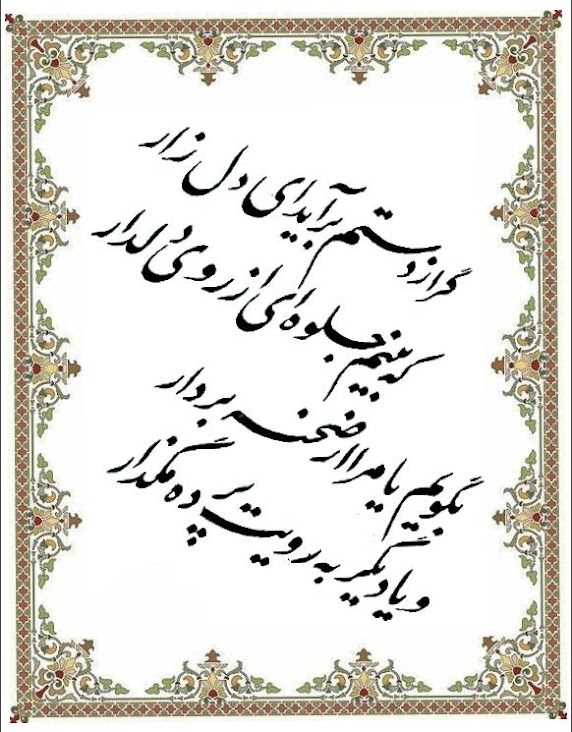 گر از دستم برآید ای دل زار
که بینم جلوه ای از روی دلدار
بگویم یا مرا از صحنه بردار
و یا دیگر به رویت پرده مگذار